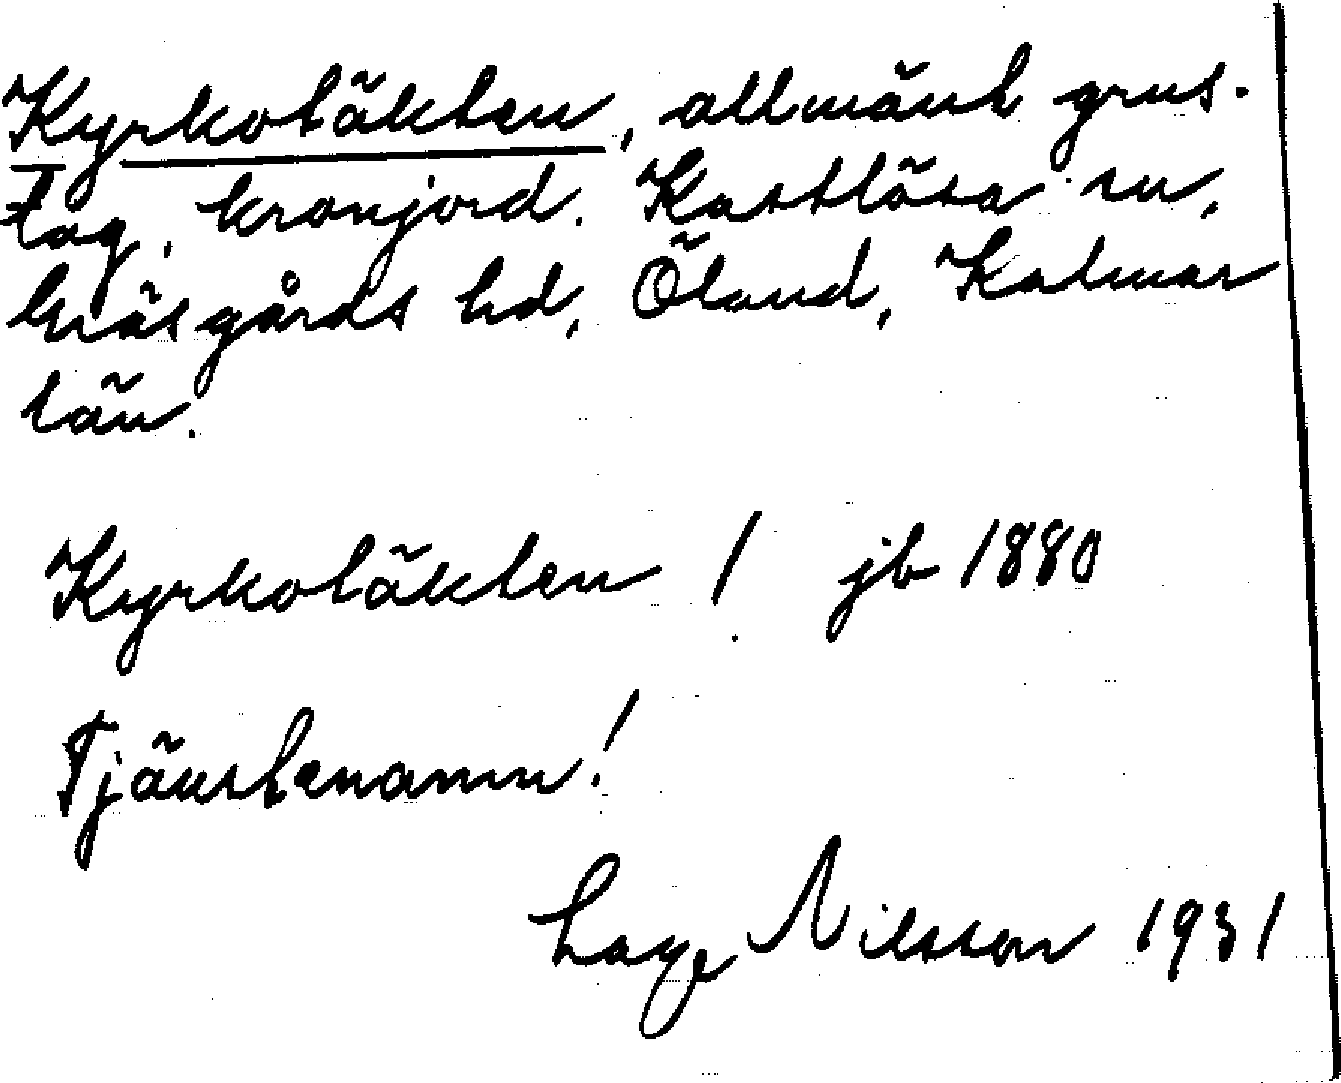 Kyrkotäkten, allmänt grus-
tag, kronjord. Kastlösa sn,
Gräsgårds hd, Öland, Kalmar
län.
Kyrkotäkten ! jb 1880
Tjänstenamn!
Lage Nilsson 1931